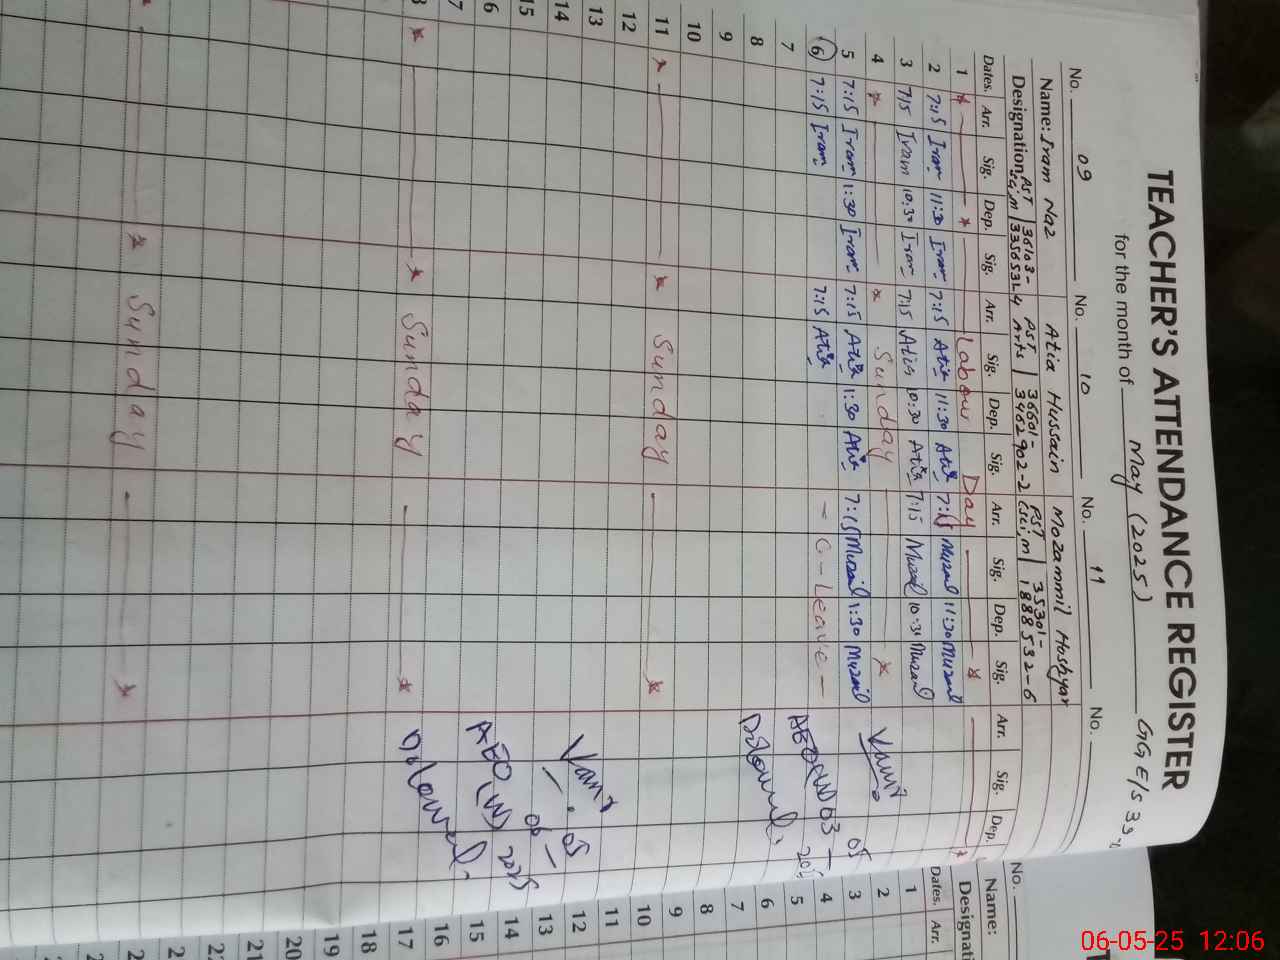 TEACHER'S ATTENDANCE REGISTER
for the month of May (2025) GGE/S 33
No. 09 No. 10 No. 11 No.
Name: Iram Naz Atia Hussain Mozammil Hoshyar
Designation PST Sci, m 36103-3356532-4 PST Arts 36601-3462902-2 PST (Sci, m) 35301-1888532-6
Dates. Arr. Sig. Dep. Sig. Arr. Sig. Dep. Sig. Arr. Sig. Dep. Sig. Arr. Sig. Dep.
1 Labour Day
2 7:15 Iram 11:30 Iram 7:15 Atia 11:30 Atia 7:15 Muzail 11:30 Muzail
3 7:15 Iram 10:30 Iram 7:15 Atia 10:30 Atia 7:15 Muzail 10:30 Muzail
4 Sunday
5 7:15 Iram 1:30 Iram 7:15 Atia 1:30 Atia 7:15 Muzail 1:30 Muzail
6 7:15 Iram 7:15 Atia - C-Leave -
7
8
9
10
11 Sunday
12
13
14
15
16
17
Sunday
Sunday
AEO(W) 03-05 2025
AEO (W) 06-05 2025
No.
Name:
Designati
Dates. Arr.
1
2
3
4
5
6
7
8
9
10
11
12
13
14
15
16
17
18
19
20
21
22
06-05-25 12:06